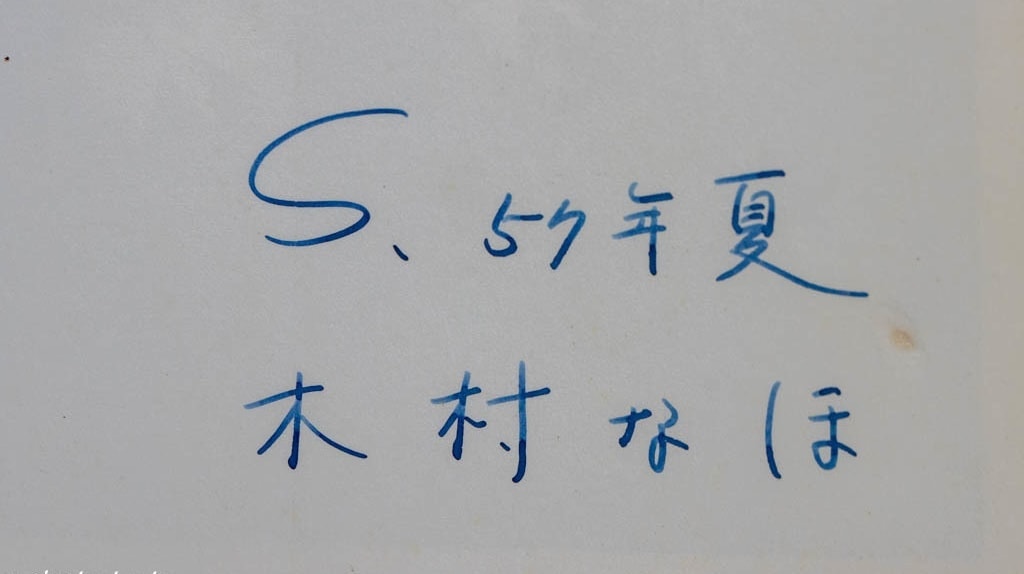 S、57年夏
木村なほ